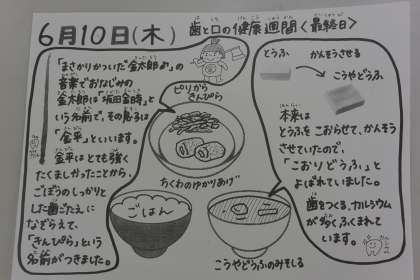 6月10日(木)
歯と口の健康週間〈最終日〉
「まさかりかついだ金太郎♪」の
音楽でおなじみの
金太郎は「坂田金時」と
いう名前で、その息子は
「金平」といいます。
金平はとても強く
たくましかったことから、
ごぼうのしっかりと
した歯ごたえに
なぞらえて、
「きんぴら」という
名前がつきました。
ピリから
きんぴら
ちくわのゆかりあげ
ごはん
こうやどうふのみそしる
とうふ
かんそうさせる
こうやどうふ
本来は
とうふをこおらせて、かんそう
させていたので、
「こおりどうふ」と
よばれていました。
歯をつくる、カルシウム
が多くふくまれて
います。